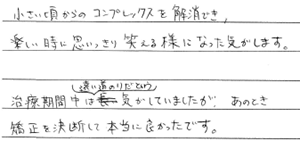 小さい頃からのコンプレックスを解消でき、
楽しい時に思いっきり笑える様になった気がします。
遠い道のりだという
治療期間中は気がしていましたが、あのとき
矯正を決断して本当に良かったです。